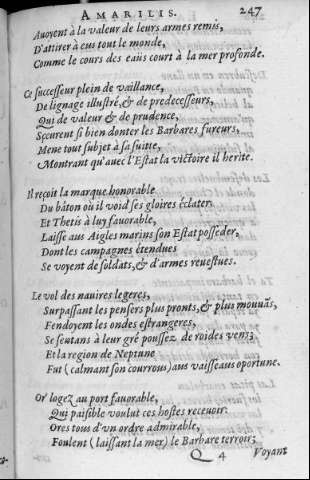 AMARILIS. 247
Avoyent à la valeur de leurs armes remis,
D'attirer à eus tout le monde,
Comme le cours des eaus court à la mer profonde.
Ce successeur plein de vaillance,
De lignage illustré, & de predecesseurs,
Qui de valeur & de prudence,
Sçeurent si bien donter les Barbares fureurs,
Mene tout subjet à sa suitte,
Montrant qu'avec l'Estat la victoire il herite.
Il reçoit la marque honorable
Du bâton où il void ses gloires éclater.
Et Thetis à luy favorable,
Laisse aus Aigles marins son Estat posseder,
Dont les campagnes étendues
Se voyent de soldats, & d'armes revestues.
Le vol des navires legeres,
Surpassant les pensers plus pronts, & plus mouvãs,
Fendoyent les ondes estrangeres,
Se sentans à leur gré poussez de roides vens;
Et la region de Neptune
Fut (calmant son courrous) aus vaisseaus oportune.
Or' logez au port favorable,
Qui paisible voulut ces hostes recevoir.
Ores tous d'un ordre admirable,
Foulent (laissant la mer) le Barbare terroir;
Q 4 Voyant